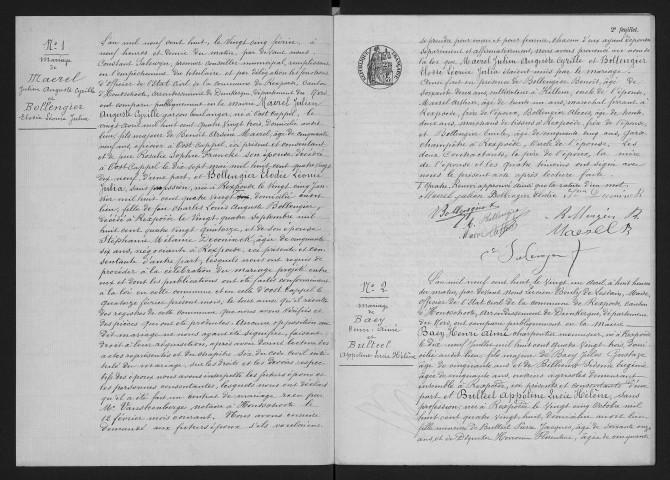 N° 1
Mariage
de
Maerel
Julien Auguste Cyrille
et
Bollengier
Elodie Léonie Julia
L'an mil neuf cent huit, le vingt cinq février, à
neuf heures et demie du matin, par devant nous
Constant Salengry, premier conseiller municipal, remplissant
en l'empêchement du titulaire et par délégation les fonctions
d'Officier de l'Etat civil de la commune de Rexpoëde, canton
d'Hondschoote, arrondissement de Dunkerque, département du Nord
ont comparu publiquement en la mairie Maerel Julien
Auguste Cyrille garçon boulanger, né à Oost Cappel, le
vingt août mil huit cent quatre vingt trois, domicilié
fils majeur de Benoit Maerel, âgé de cinquante
ans, épicier à Oost Cappel, ici présent et consentant
et de feue Rosalie Sophie son épouse décédée
à Oost Cappel le dix sept mai mil huit cent quatre vingt
dix neuf d'une part, et Bollengier Elodie Léonie
Julia, sans profession, née à Rexpoëde le vingt cinq Jan-
vier mil huit cent quatre vingt domiciliée
fille de feu Charles Louis Auguste Bollengier,
décédé à Rexpoëde le vingt quatre septembre mil
huit cent quatre vingt quatorze, et de son épouse
Stéphanie Mélanie Deconinck, âgée de cinquante
six ans, négociante à Rexpoëde, ici présente et con-
sentante d'autre part, lesquels nous ont requis de
procéder à la célébration du mariage projeté entre
eux et dont les publications ont été faites conformément
à la loi en cette commune et en celle d'Oost Cappel le
quatorze février présent mois, le tout ainsi qu'il résulte
des registres de cette commune que nous avons vérifiés et
des pièces qui ont été produites. Aucune opposition au
dit mariage ne nous ayant été signifiée, faisant
droit à leur réquisition, après avoir donné lecture des
actes représentés et du chapitre six du code civil inti-
tulé du mariage, sur les droits et les devoirs respec-
tifs des époux nous avons interpellé les futurs époux et
les personnes consentantes, lesquels nous ont déclaré
qu'il a été fait un contrat de mariage reçu par
Mr notaire à Hondschoote le
12 février mois courant. Nous avons ensuite
demandé aux futurs époux s'ils voulaient
2e feuillet.
se prendre pour mari et pour femme, chacun d'eux ayant répondu
séparément et affirmativement, nous avons prononcé au nom de
la loi que Maerel Julien Auguste Cyrille et Bollengier
Elodie Léonie Julia étaient unis par le mariage.
Ainsi fait en présence de Bollengier Benoît, âgé de
soixante deux ans, cultivateur à Killem, oncle de l'épouse,
Maerel Arthur, âgé de trente un ans, maréchal ferrant à
Rexpoëde, frère de l'époux, Bollengier Alidor, âgé de trente
deux ans, marchand de tissus à Rexpoëde, frère de l'épouse,
et Bollengier Emile, âgé de cinquante cinq ans, garde
champêtre à Rexpoëde, oncle de l'épouse. Les
deux contractants, le père de l'époux, la mère
de l'épouse et les quatre témoins ont signé avec
nous le présent acte après lecture faite.
Maerel Julien Bollengier Elodie Deconinck
Bollengier
Bollengier
Maerel
Salengry
N° 2
Mariage
de
Baey
Henri Aimé
et
Bulteel
Appoline Lucie Hélène
L'an mil neuf cent huit, le vingt un avril à huit heures
du matin, par devant nous Lucien Maire,
officier de l'Etat civil de la commune de Rexpoëde, canton
d'Hondschoote, arrondissement de Dunkerque, département
du Nord, ont comparu publiquement en la mairie
Baey Henri Aimé charpentier menuisier, né à Rexpoëde
le dix neuf Juillet mil huit cent quatre vingt trois, domi-
cilié fils majeur de Baey Jules Gustave
âgé de cinquante ans et de Eugénie,
âgée de cinquante ans, domiciliés
ensemble à Rexpoëde, ici présents et consentants d'une
part et Bulteel Appoline Lucie Hélène, sans
profession, née à Rexpoëde le vingt cinq octobre mil
huit cent quatre vingt sept, domiciliée
fille mineure de Bulteel Pierre Jacques, âgé de soixante cinq
ans, et de Honorine Florentine, âgée de cinquante